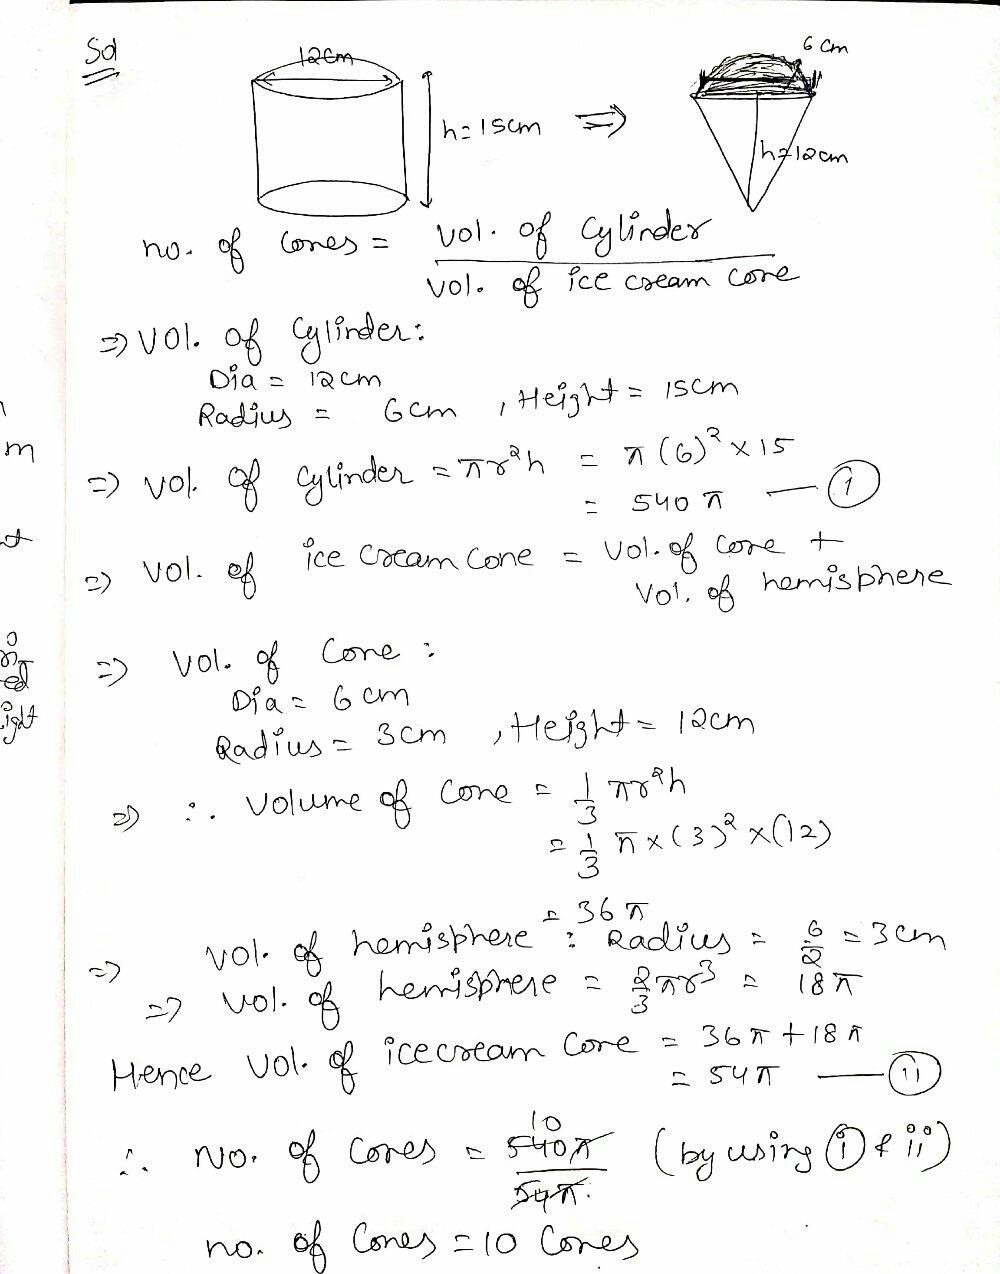 Sol
12cm
h=15cm
⇒
6 cm
h=12cm
no. of cones = vol. of cylinder
vol. of ice cream cone
⇒ Vol. of cylinder:
Dia = 12cm
Radius = 6cm , Height = 15cm
⇒ vol. of cylinder = πr²h = π(6)² × 15
= 540 π — ①
⇒ vol. of ice cream cone = vol. of cone +
vol. of hemisphere
⇒ vol. of cone :
Dia = 6 cm
Radius = 3cm , Height = 12cm
⇒ ∴ volume of cone = 1/3 πr²h
= 1/3 π × (3)² × (12)
= 36 π
⇒ vol. of hemisphere : Radius = 6/2 = 3 cm
⇒ vol. of hemisphere = 2/3 πr³ = 18 π
Hence vol. of icecream cone = 36 π + 18 π
= 54 π — (ii)
10
∴ No. of cones = 540π/54π. (by using (i) & ii)
no. of cones = 10 cones
m
ed